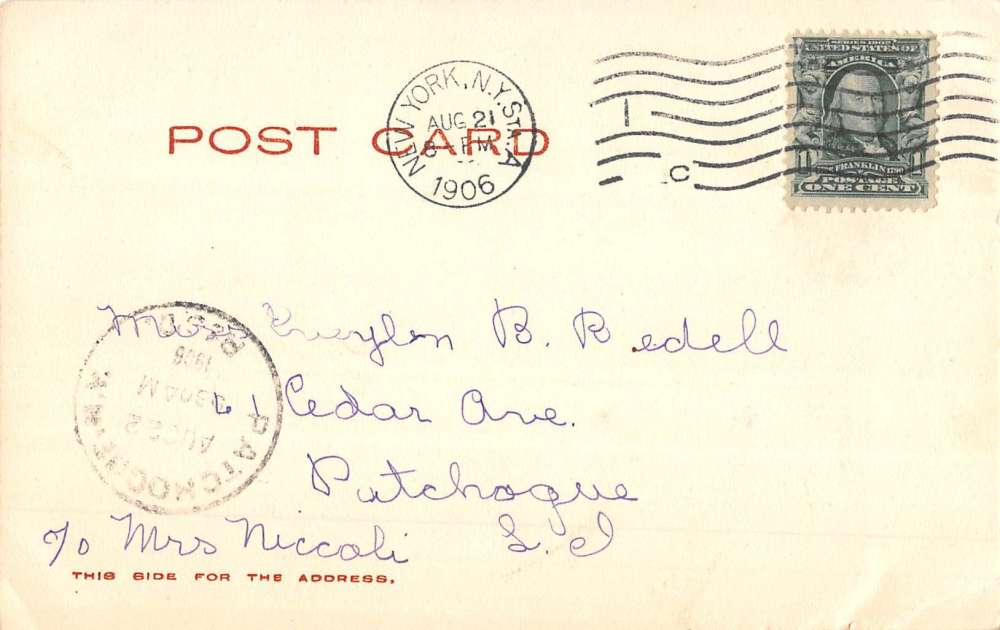 POST CARD
NEW YORK, N.Y. STA. A
AUG 21
8 PM
1906
C
SERIES 1902
UNITED STATES OF
AMERICA
FRANKLIN
POSTAGE
1 1
ONE CENT
Miss B. Bedell
1 Cedar Ave.
Patchogue
c/o Mrs Niccoli L. I
PATCHOGUE N.Y.
AUG 22
AM
1906
THIS SIDE FOR THE ADDRESS.